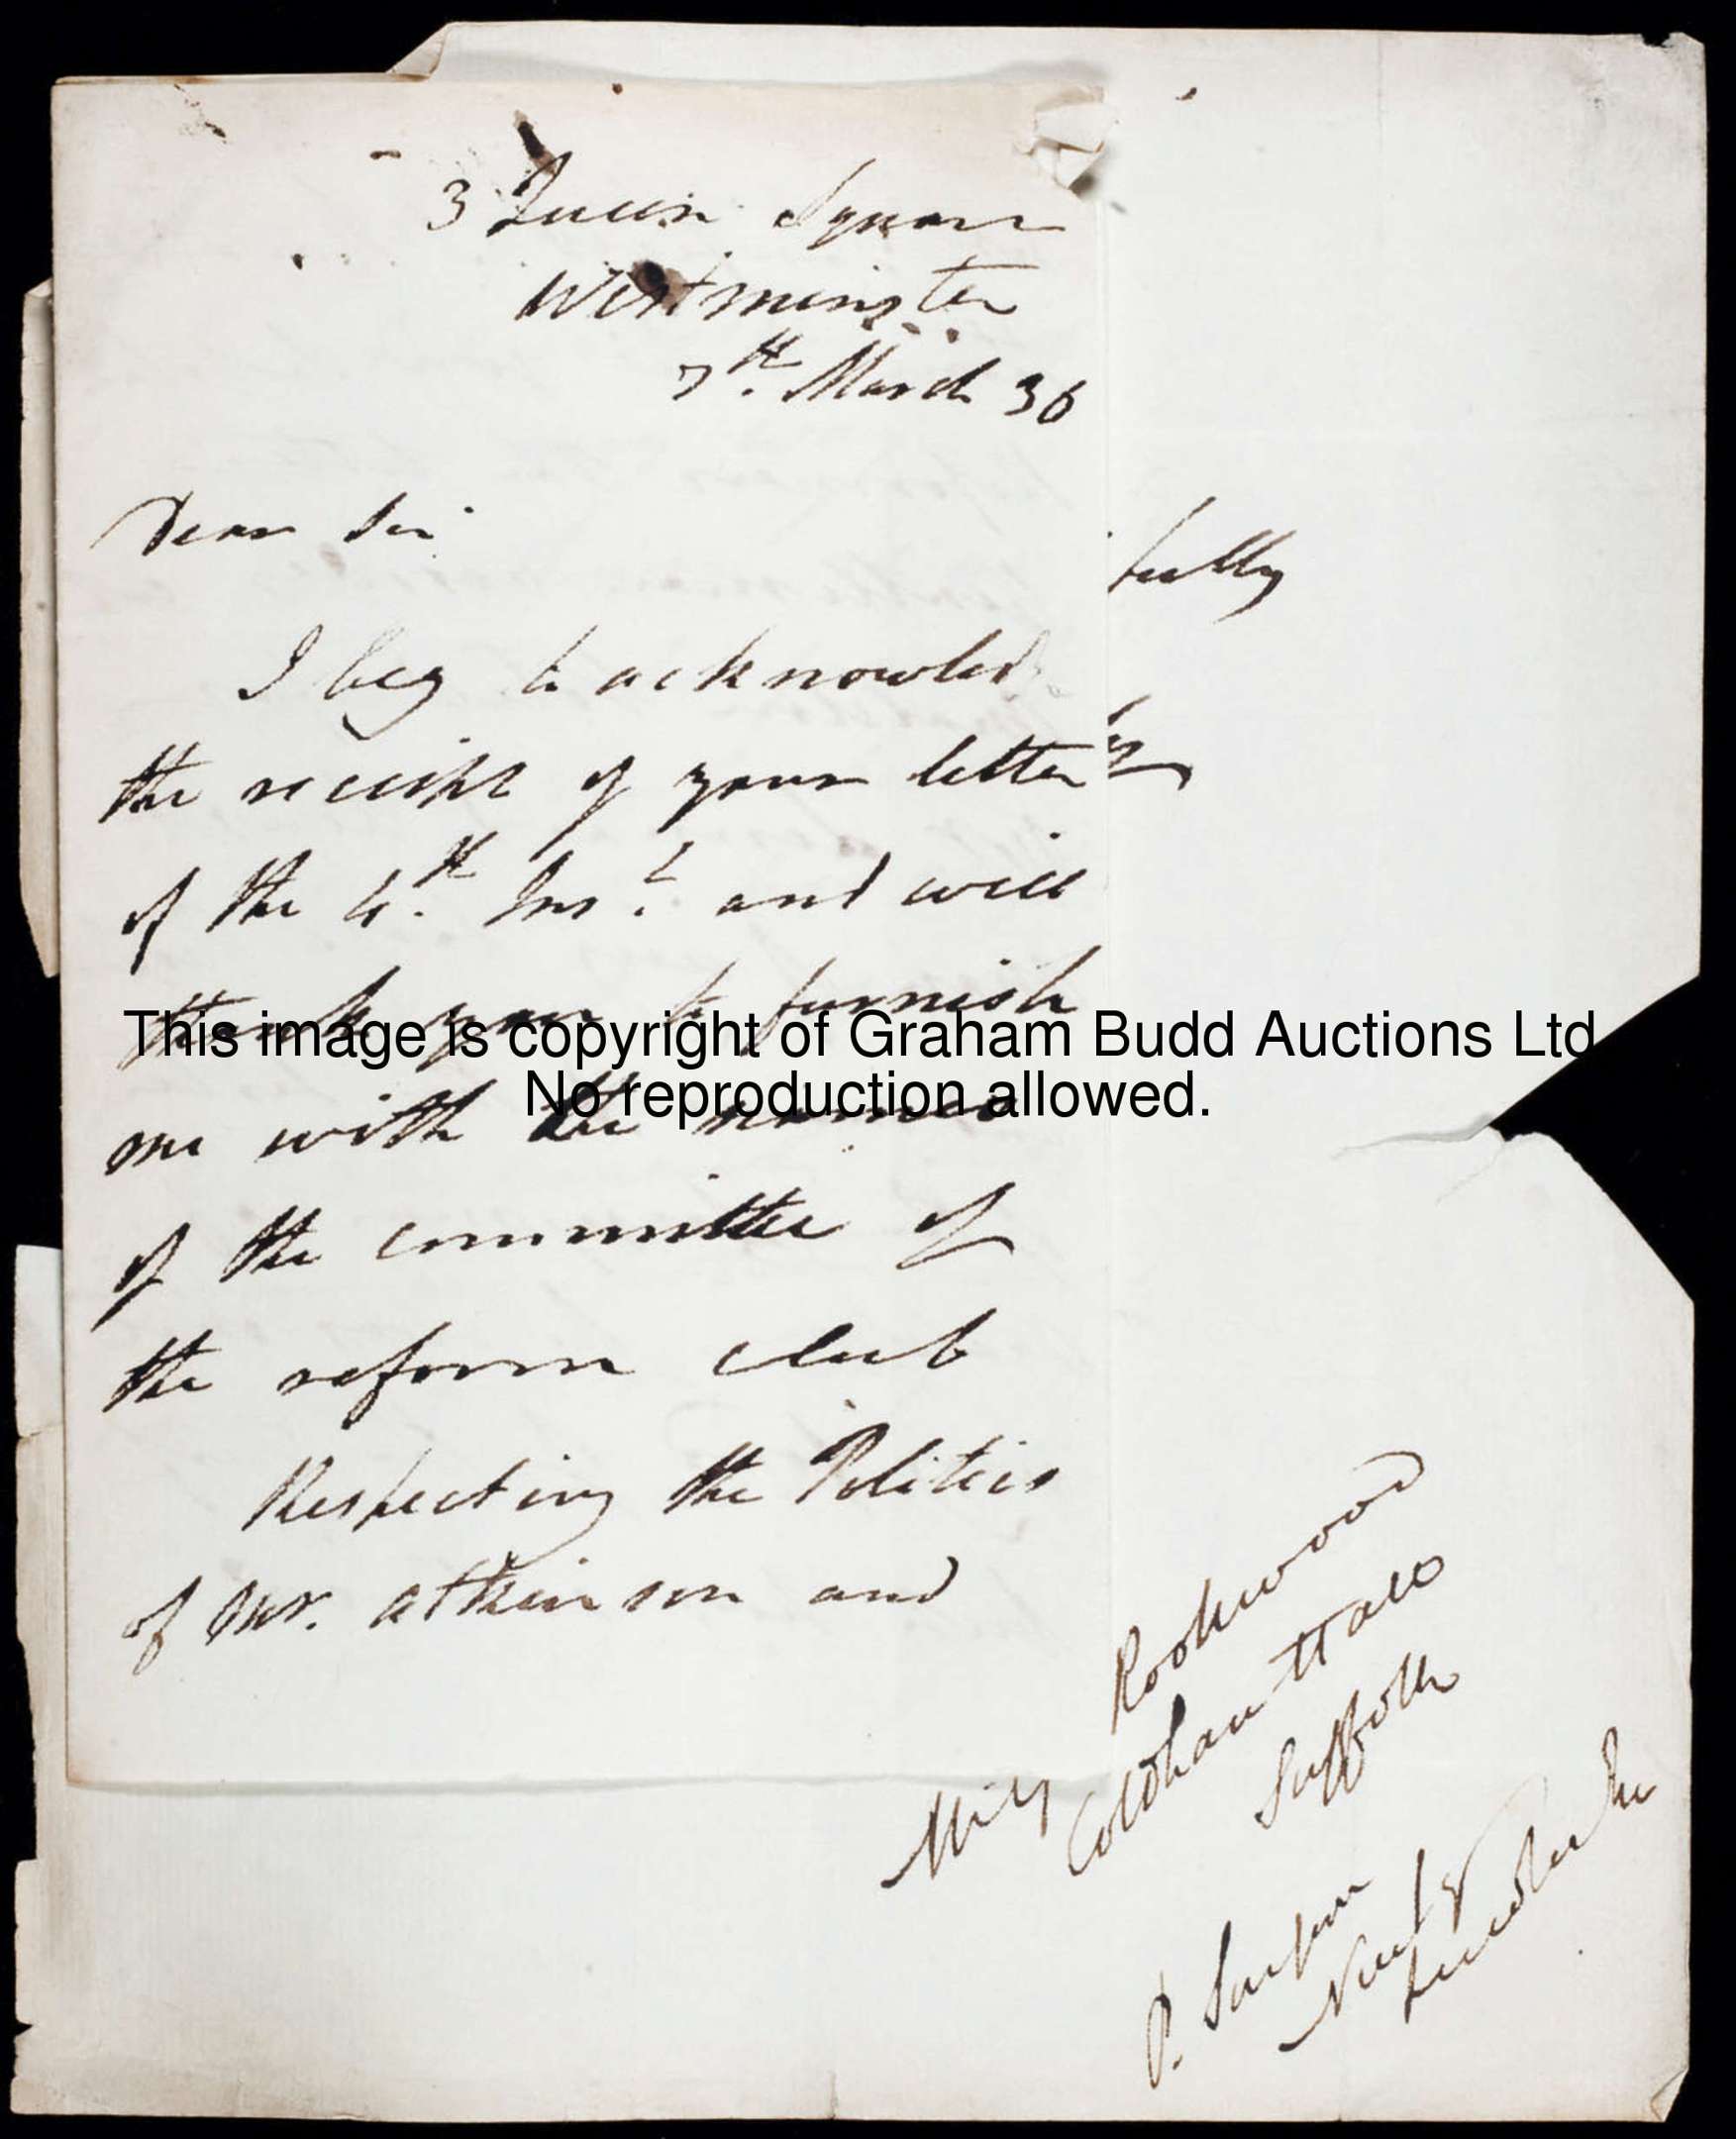 3 Queen Square
Westminster
7th. March 36
Dear Sir
I beg to acknowled
the receipt of your letter
of the 4th. Inst. and will
thank you to furnish
me with the names
of the committee of
the reform club
Respecting the Politics
of Mr. atkinson and
fully
This image is copyright of Graham Budd Auctions Ltd
No reproduction allowed.
Rookwood
Coldham Hall
Suffolk
P.